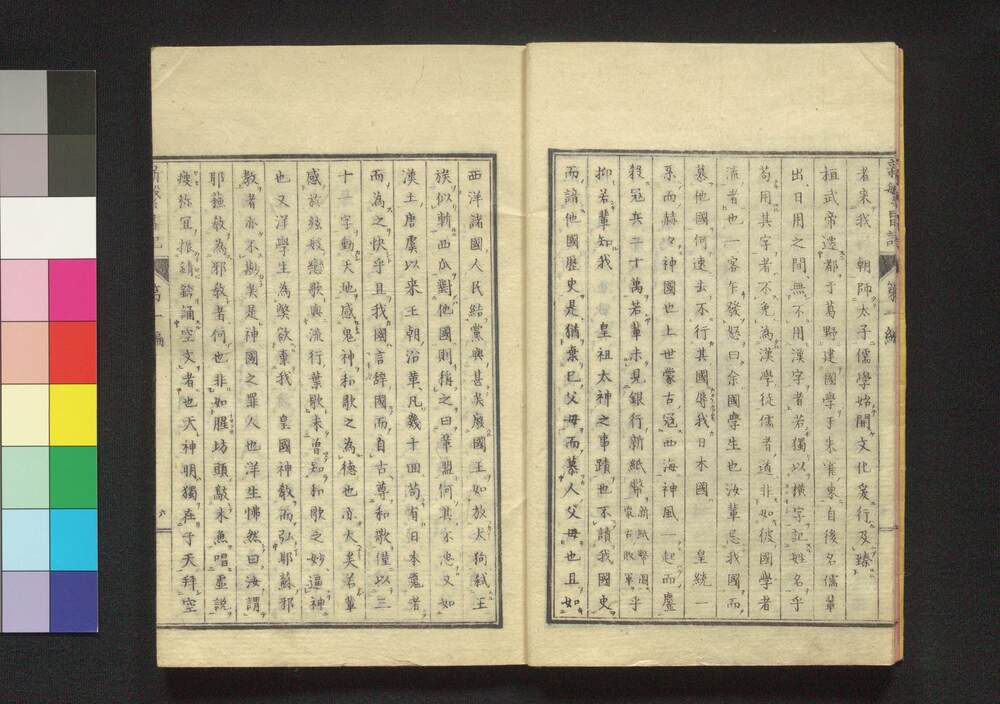 者來我 朝師太子儒學始開文化爰行及臻
桓武帝遷都于葛野建國學于朱雀東自後名儒輩
出日用之間無不用漢字者若獨以横字記姓名乎
苟用其字者不免為漢學從儒者道非如彼國學者
流者也一客乍發怒曰余國學生也汝輩忘我國而
慕他國何速去不行其國辱我日本國 皇統一
系而赫々神國也上世蒙古冠西海神風一起而鏖
殺冠兵二十萬若輩未見銀行新紙幣新紙幣圖蒙古敗軍乎
抑若輩知我 皇祖太神之事蹟也不讀我國史
而諳他國歷史是猶棄已父母而慕人父母也且如
西洋諸國人民結黨與甚矣廢國王如放犬狗弑王
族似斬西瓜對他國則稱之曰革盟何其不忠又如
漢土唐虞以來王朝沿革凡幾十回苟有日本魂者
而為之快乎且我國言辞國而自古尊和歌僅以三
十一字動天地感鬼神和歌之為德也亦大矣若輩
感於絃妓戀歌與流行葉歌未曾知和歌之妙逼神
也又洋學生為獎欽棄我 皇國神教而弘耶蘇邪
教者亦不尠矣是神國之罪人也洋生怫然曰汝謂
耶蘇教為邪教者何也非如腥坊頭敲木魚唱虛說
瘦祢宜振鯖鈴誦空文者也天神明獨在于天拜空
第一編
六